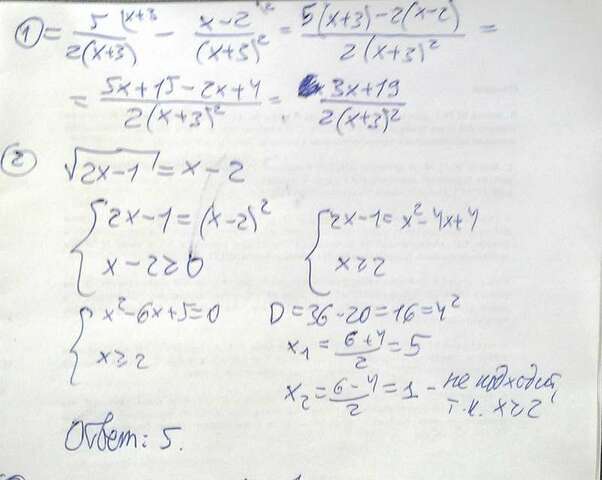 ① = 5 (x+3 / 2(x+3) - x-2 (2 / (x+3)² = 5(x+3)-2(x-2) / 2(x+3)² =
= 5x+15-2x+4 / 2(x+3)² = 3x+19 / 2(x+3)²
② √2x-1 = x-2
{ 2x-1 = (x-2)² { 2x-1 = x²-4x+4
x-2≥0 x≥2
{ x²-6x+5=0 D=36-20=16=4²
x≥2 x₁ = 6+4 / 2 = 5
x₂ = 6-4 / 2 = 1 - не подходит,
т.к. x≥2
Ответ: 5.